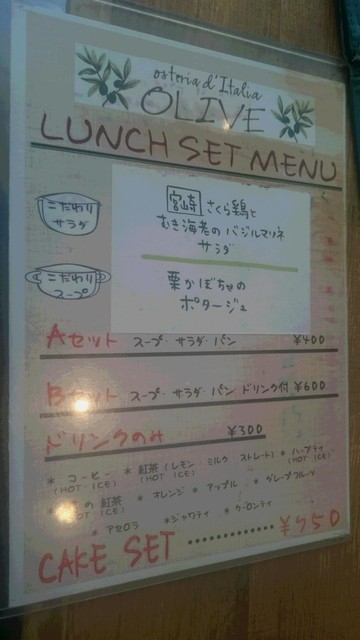 osteria d'Italia
OLIVE
LUNCH SET MENU
こだわり
サラダ
宮崎 さくら鶏と
むき海老のバジルマリネ
サラダ
こだわり
スープ
栗かぼちゃの
ポタージュ
Aセット スープ・サラダ・パン ¥400
Bセット スープ・サラダ・パン ドリンク付 ¥600
ドリンクのみ ¥300
* コーヒー (HOT ICE) * 紅茶 (レモン ミルク ストレート) (HOT ICE) * ハーブティ (HOT ICE)
の紅茶 (HOT ICE) * オレンジ * アップル * グレープフルーツ
* アセロラ * ジャワティ * ウーロンティ
CAKE SET ············ ¥750